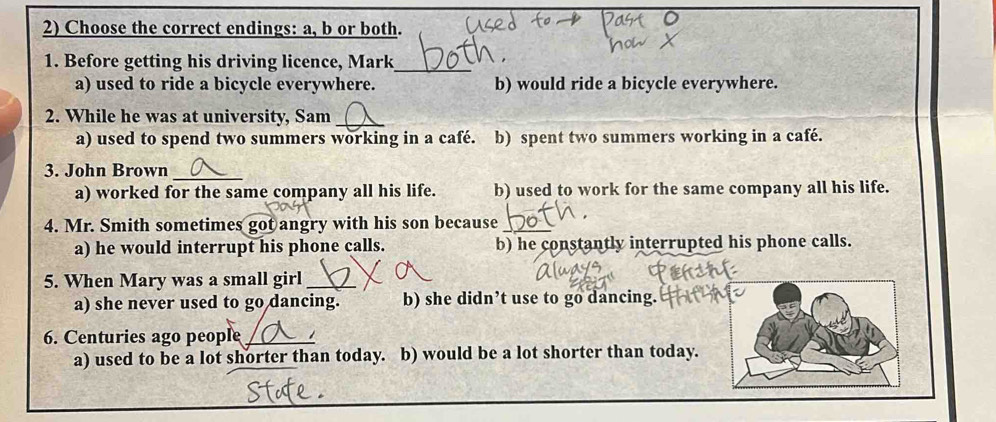 2) Choose the correct endings: a, b or both. used to → past O
now X
1. Before getting his driving licence, Mark both.
a) used to ride a bicycle everywhere. b) would ride a bicycle everywhere.
2. While he was at university, Sam a
a) used to spend two summers working in a café. b) spent two summers working in a café.
3. John Brown a
a) worked for the same company all his life. b) used to work for the same company all his life.
past
4. Mr. Smith sometimes got angry with his son because both.
a) he would interrupt his phone calls. b) he constantly interrupted his phone calls.
always 中断された
5. When Mary was a small girl b X a
a) she never used to go dancing. b) she didn't use to go dancing.
6. Centuries ago people a
a) used to be a lot shorter than today. b) would be a lot shorter than today.
state.